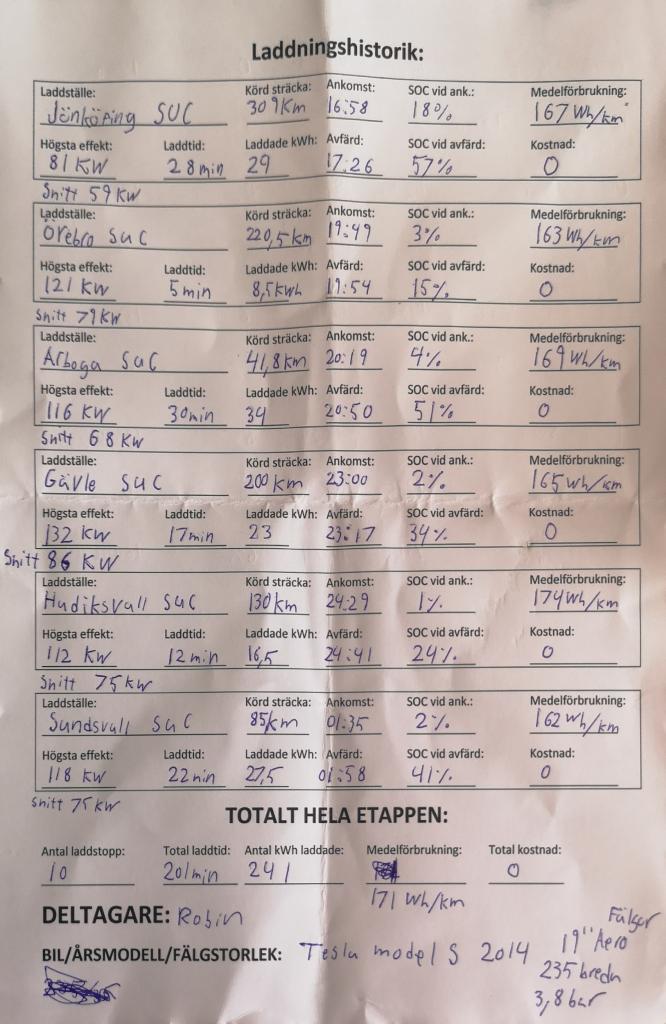 Laddningshistorik:
Laddställe: Körd sträcka: Ankomst: SOC vid ank.: Medelförbrukning:
Jönköping SUC 309 Km 16:58 18% 167 Wh/km
Högsta effekt: Laddtid: Laddade kWh: Avfärd: SOC vid avfärd: Kostnad:
81 KW 28 min 29 17:26 57% 0
Snitt 59 KW
Laddställe: Körd sträcka: Ankomst: SOC vid ank.: Medelförbrukning:
Örebro SuC 220,5 km 19:49 3% 163 Wh/km
Högsta effekt: Laddtid: Laddade kWh: Avfärd: SOC vid avfärd: Kostnad:
121 KW 5 min 8,5 kWh 19:54 15% 0
Snitt 79 KW
Laddställe: Körd sträcka: Ankomst: SOC vid ank.: Medelförbrukning:
Arboga SuC 41,8 km 20:19 4% 169 Wh/km
Högsta effekt: Laddtid: Laddade kWh: Avfärd: SOC vid avfärd: Kostnad:
116 KW 30 min 34 20:50 51% 0
Snitt 68 KW
Laddställe: Körd sträcka: Ankomst: SOC vid ank.: Medelförbrukning:
Gävle SuC 200 km 23:00 2% 165 Wh/km
Högsta effekt: Laddtid: Laddade kWh: Avfärd: SOC vid avfärd: Kostnad:
132 KW 17 min 23 23:17 34% 0
Snitt 86 KW
Laddställe: Körd sträcka: Ankomst: SOC vid ank.: Medelförbrukning:
Hudiksvall SuC 130 km 24:29 1% 174 Wh/km
Högsta effekt: Laddtid: Laddade kWh: Avfärd: SOC vid avfärd: Kostnad:
112 KW 12 min 16,5 24:41 24% 0
Snitt 75 KW
Laddställe: Körd sträcka: Ankomst: SOC vid ank.: Medelförbrukning:
Sundsvall SuC 85 km 01:35 2% 162 Wh/km
Högsta effekt: Laddtid: Laddade kWh: Avfärd: SOC vid avfärd: Kostnad:
118 KW 22 min 27,5 01:58 41% 0
Snitt 75 KW
TOTALT HELA ETAPPEN:
Antal laddstopp: Total laddtid: Antal kWh laddade: Medelförbrukning: Total kostnad:
10 201 min 241 0
171 Wh/km
DELTAGARE: Robin
BIL/ÅRSMODELL/FÄLGSTORLEK: Tesla model S 2014
Fälgar
19" Aero
235 breda
3,8 bar